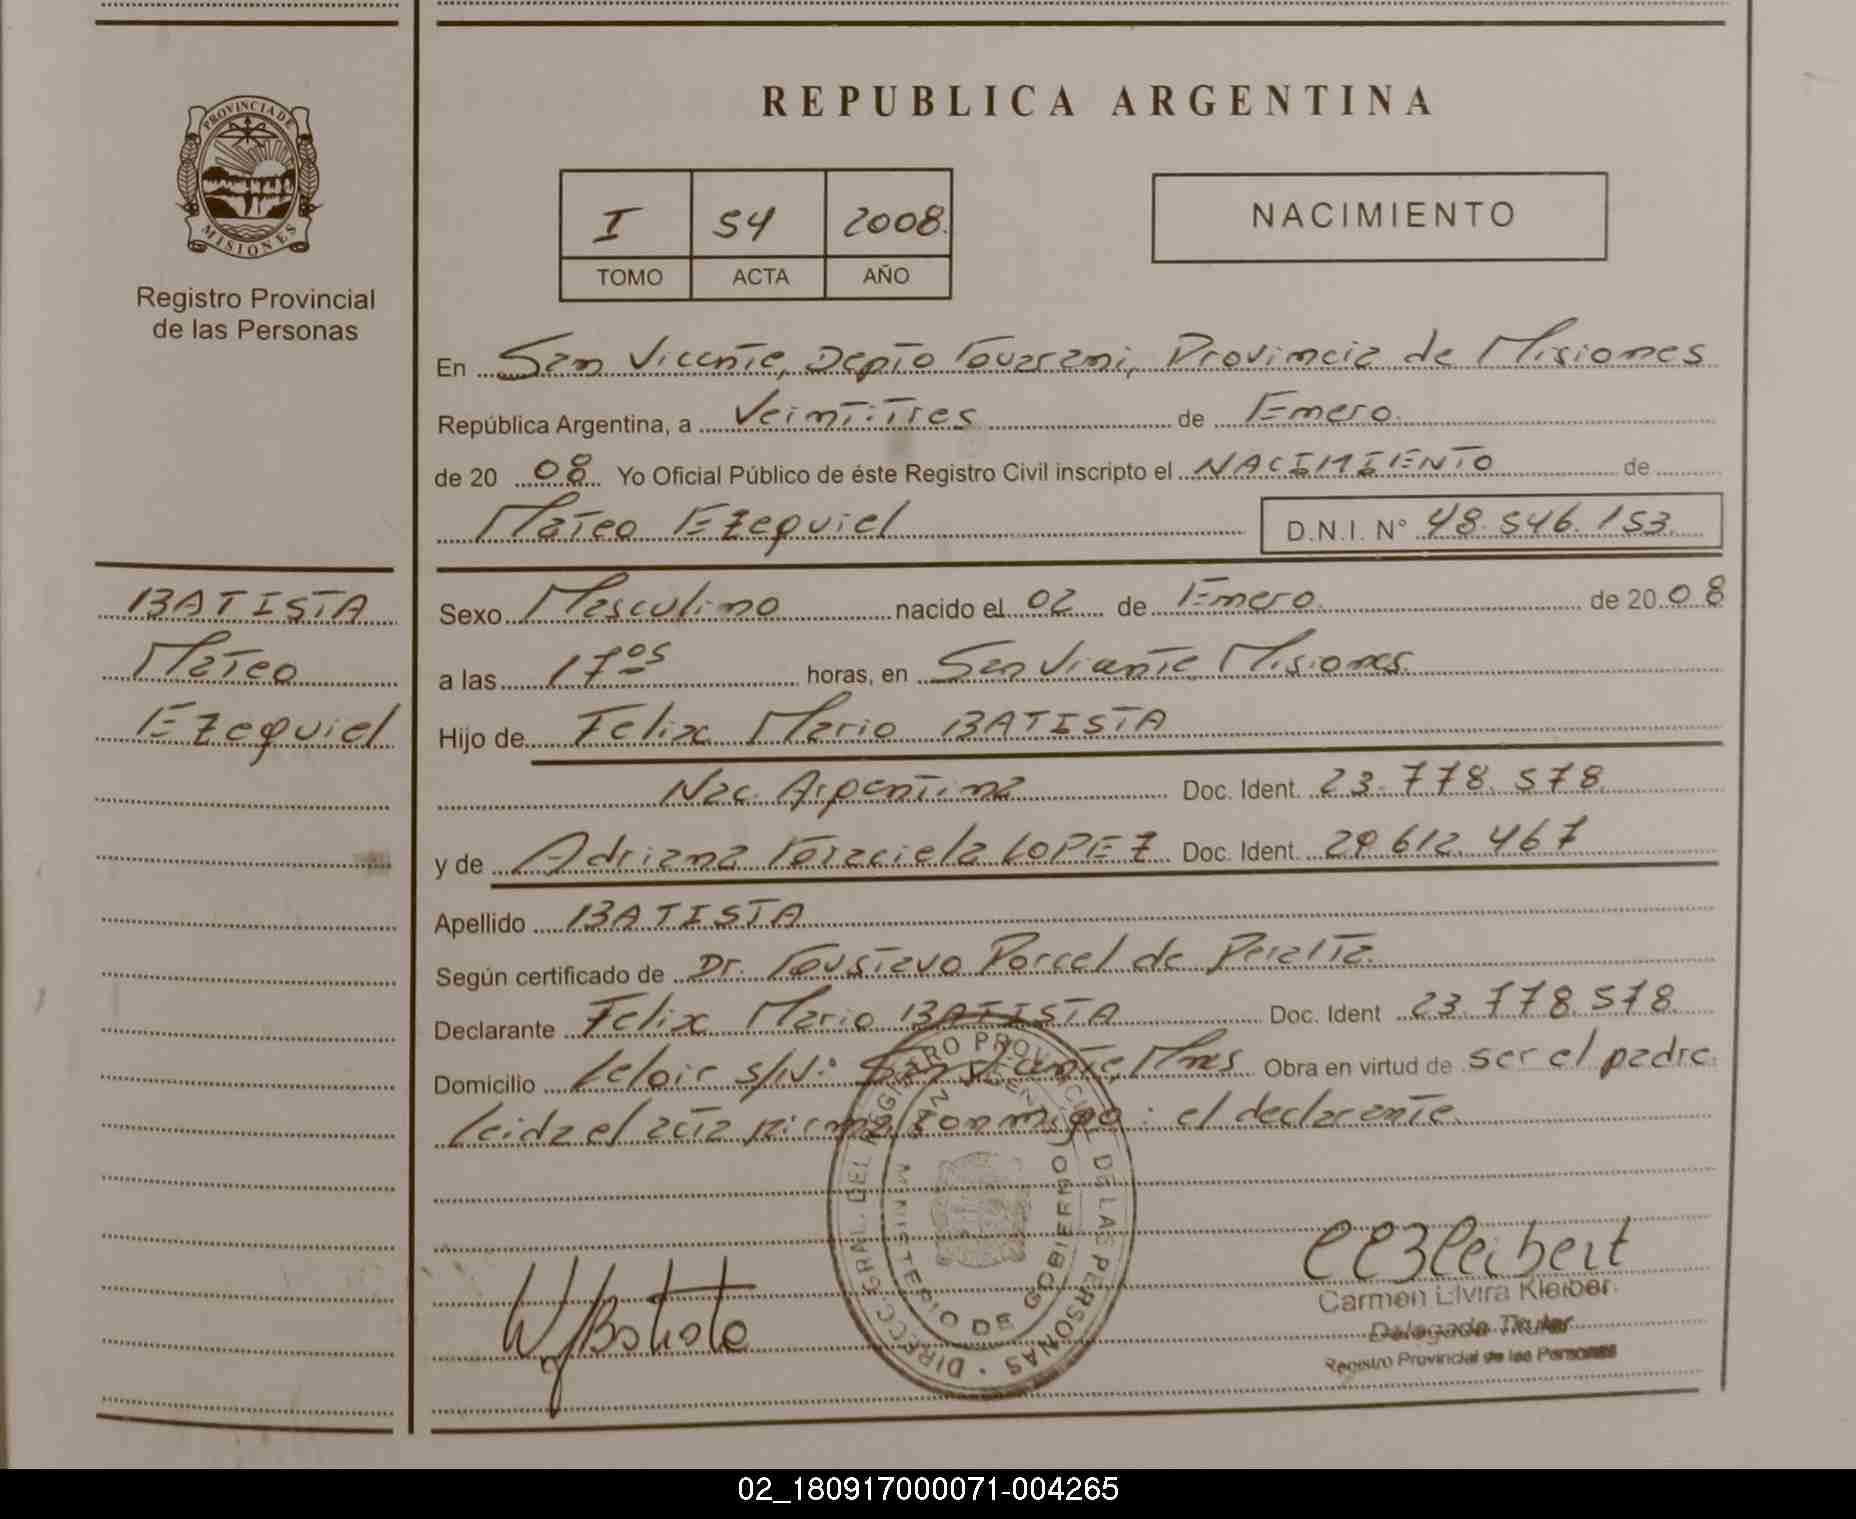 PROVINCIA DE
MISIONES
Registro Provincial
de las Personas
BATISTA
Mateo
Ezequiel
REPUBLICA ARGENTINA
I 54 2008.
TOMO ACTA AÑO
NACIMIENTO
En San Vicente, Depto Guarani, Provincia de Misiones
República Argentina, a Veintitres de Enero.
de 20 08 Yo Oficial Público de éste Registro Civil inscripto el NACIMIENTO de
Mateo Ezequiel D.N.I. N° 48.546.153.
Sexo Masculino nacido el 02 de Enero. de 20 08
a las 17 05 horas, en San Vicente Misiones.
Hijo de Felix Mario BATISTA
Nac. Argentina Doc. Ident. 23.778.578.
y de Adriana Graciela LOPEZ Doc. Ident. 29.612.467
Apellido BATISTA
Según certificado de Dr. Gustavo Porcel de Peralta.
Declarante Felix Mario BATISTA Doc. Ident 23.778.578.
Domicilio Leloir s/N° San Vicente, Mnes Obra en virtud de ser el padre.
Leida el acta firma conmigo: el declarante.
DIRECC. GRAL. DEL REGISTRO PROVINCIAL DE LAS PERSONAS
SAN VICENTE
MINISTERIO DE GOBIERNO
Batista
Carmen Elvira Kleiber
Delegada Titular
Registro Provincial de las Personas
02_180917000071-004265